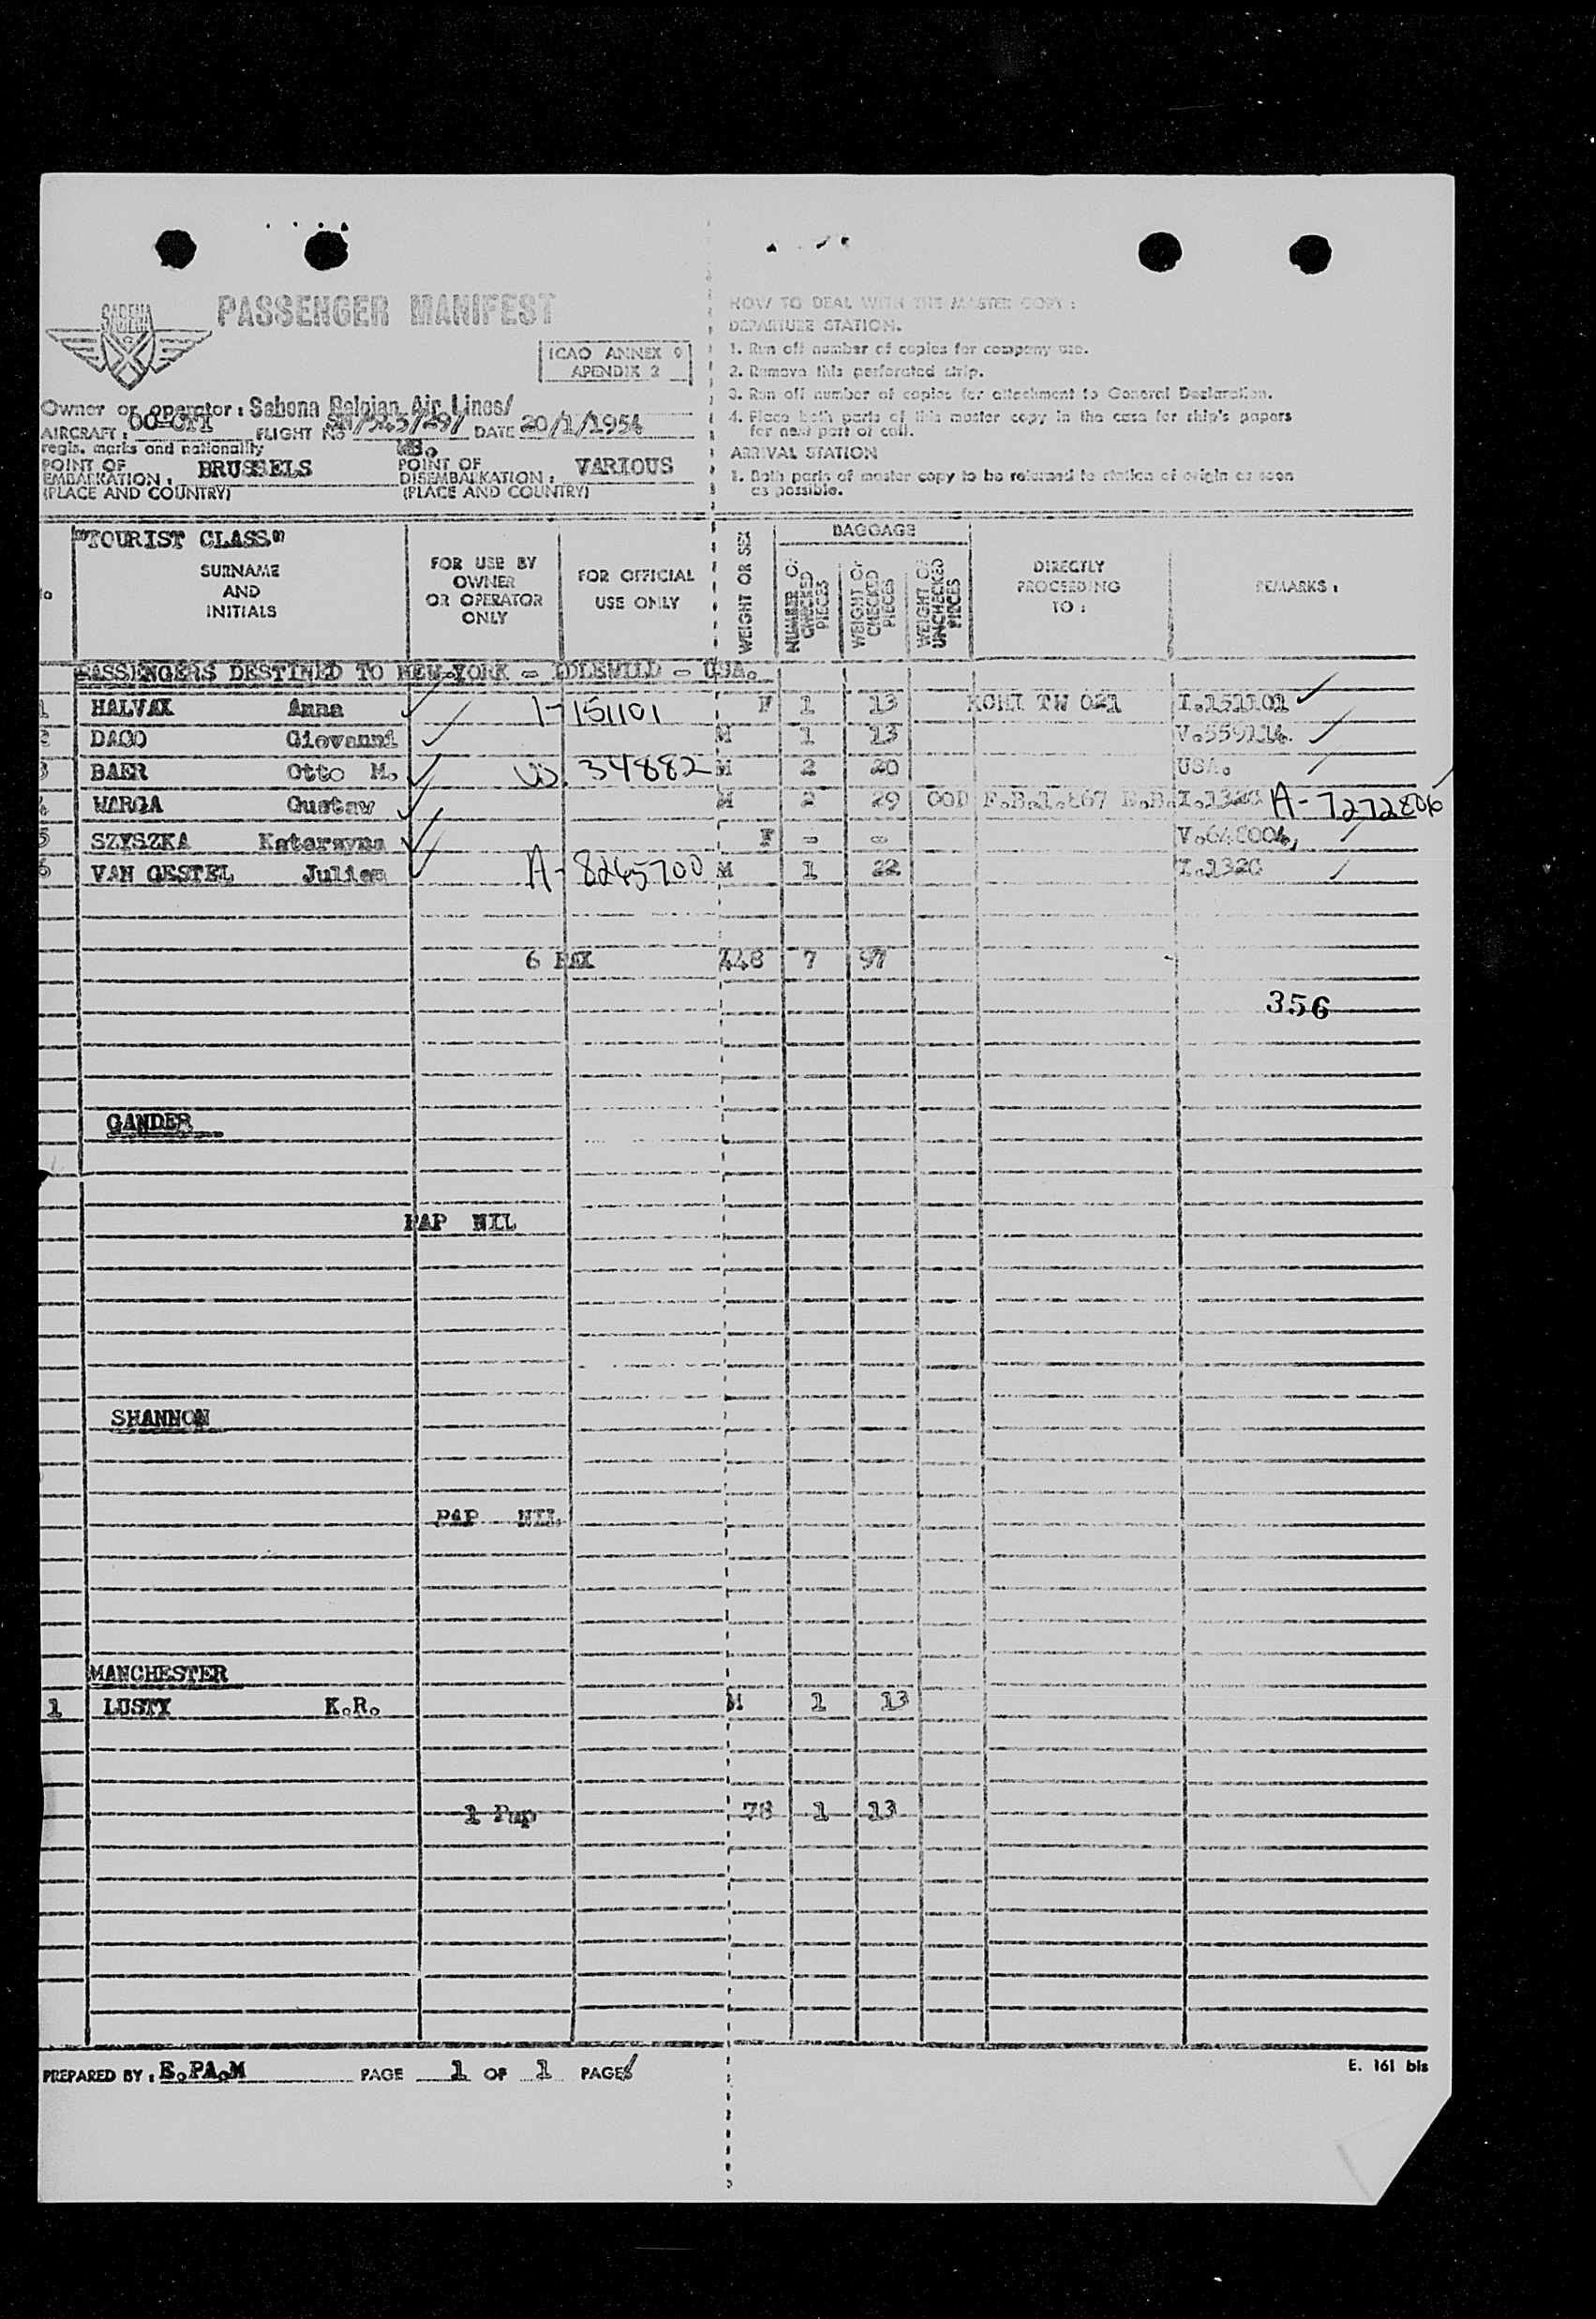 SABENA
PASSENGER MANIFEST
ICAO ANNEX 9
APENDIX 2
Owner or operator: Sabena Belgian Air Lines/
AIRCRAFT: OO-CTI FLIGHT No SN/545/297 DATE 20/1/1954
regis. marks and nationality
POINT OF EMBARKATION: BRUSSELS POINT OF DISEMBARKATION: VARIOUS
(PLACE AND COUNTRY) (PLACE AND COUNTRY)
HOW TO DEAL WITH THE MASTER COPY:
DEPARTURE STATION.
1. Run off number of copies for company use.
2. Remove this perforated strip.
3. Run off number of copies for attachment to General Declaration.
4. Place both parts of this master copy in the case for ship's papers
for next port of call.
ARRIVAL STATION
1. Both parts of master copy to be returned to station of origin as soon
as possible.
"TOURIST CLASS"
SURNAME AND INITIALS
FOR USE BY OWNER OR OPERATOR ONLY
FOR OFFICIAL USE ONLY
WEIGHT OR SEX
BAGGAGE
NUMBER OF CHECKED PIECES
WEIGHT OF CHECKED PIECES
WEIGHT OF UNCHECKED PIECES
DIRECTLY PROCEEDING TO:
REMARKS:
PASSENGERS DESTINED TO NEW-YORK - IDLEWILD - USA.
1 HALVAX Anna 1-151101 F 1 13 TW 021 I.151101
2 DAGO Giovanni M 1 13
3 BAER Otto M. US. 34882 M 2 20 USA.
4 WARGA Gustaw M 2 29 I.132C A-7272806
5 SZYSZKA Katerzyna F - -
6 VAN GESTEL Julien A-8245700 M 1 22 I.132C
6 PAX 448 7 97
356
GANDER
PAP NIL
SHANNON
PAP NIL
MANCHESTER
1 LUSTY K.R. M 1 13
1 Pap 78 1 13
PREPARED BY: E.PA.M PAGE 1 OF 1 PAGES
E. 161 bis